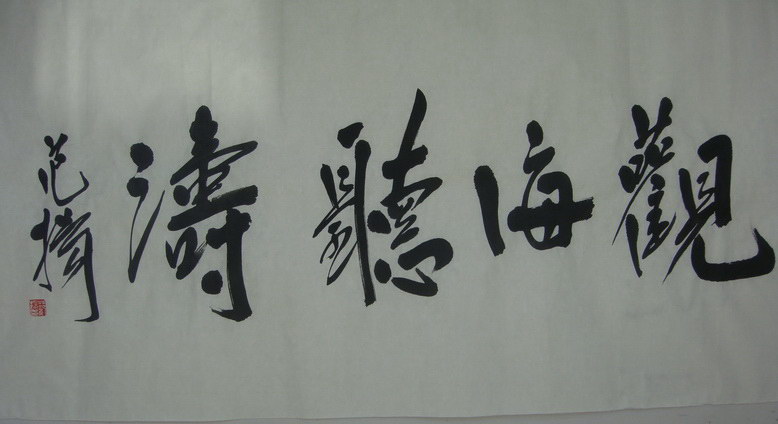 觀海聽濤
范